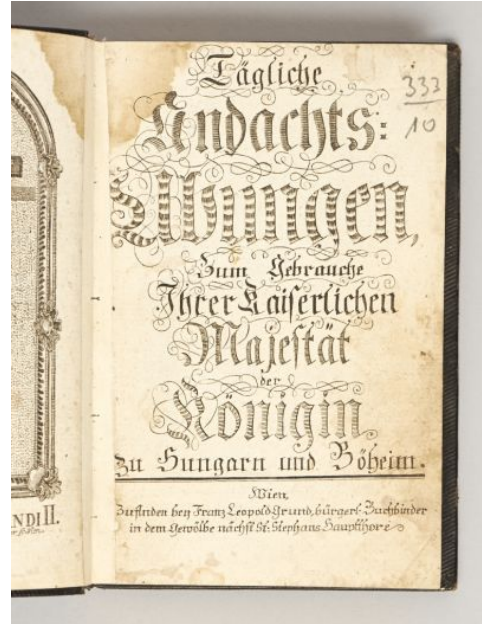 Tägliche
Andachts:
Übungen,
Zum Gebrauche
Ihrer Kaiserlichen
Majestät
der
Königin
zu Hungarn und Böheim.
Wien,
Zu finden bey Franz Leopold Grund, bürgerl. Buchbinder
in dem Gewölbe nächst St. Stephans Hauptthore
333
10
NDI II.